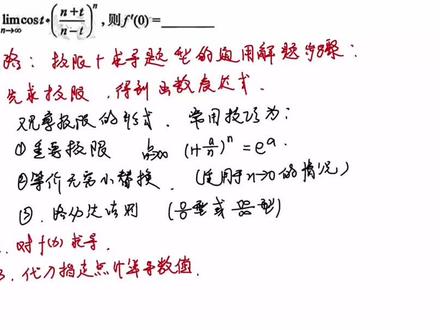 lim cos t·((n+t)/(n−t))ⁿ, 则f′(0)=______
n→∞
路: 极限+求导题型的通用解题步骤:
先求极限, 得到函数表达式.
观察极限的形式, 常用技巧为:
① 重要极限 lim n→∞ (1+a/n)ⁿ = eᵃ.
②等价无穷小替换. (使用于n→0的情况)
③. 洛必达法则 (0/0型或∞/∞型)
. 对f(t)求导.
3. 代入指定点计算导数值.